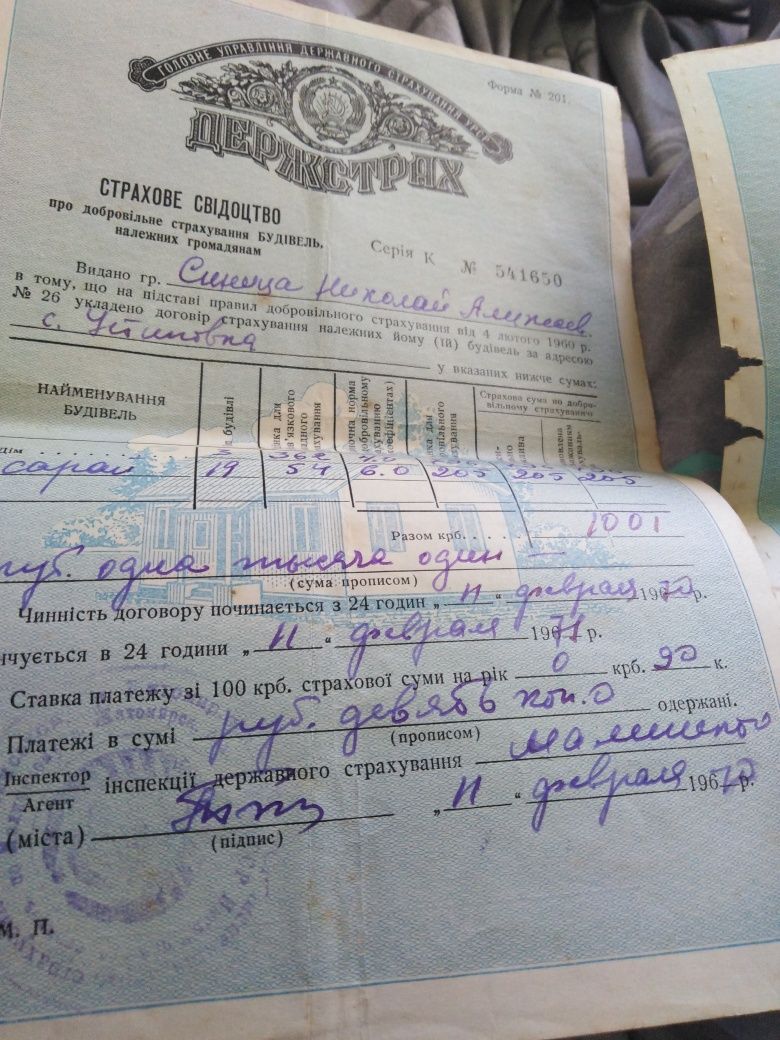 ГОЛОВНЕ УПРАВЛІННЯ ДЕРЖАВНОГО СТРАХУВАННЯ УРСР
Форма № 201.
ДЕРЖСТРАХ
СТРАХОВЕ СВІДОЦТВО
про добровільне страхування БУДІВЕЛЬ,
належних громадянам
Серія К № 541650
Видано гр. Синица Николай
в тому, що на підставі правил добровільного страхування від 4 лютого 1960 р.
№ 26 укладено договір страхування належних йому (їй) будівель за адресою
с. у вказаних нижче сумах:
НАЙМЕНУВАННЯ
БУДІВЕЛЬ
Страхова сума по добро-
вільному страхуванню
сарай 19 54 6.0 205 205 205
Разом крб. 1001
руб. одна тысяча один
(сума прописом)
Чинність договору починається з 24 годин „11“ февраля 1970 р.
нчується в 24 години „11“ февраля 1971 р.
Ставка платежу зі 100 крб. страхової суми на рік 0 крб. 90 к.
Платежі в сумі руб. девять коп. 0 одержані.
(прописом)
Інспектор
Агент
інспекції державного страхування
(міста)
(підпис)
„11“ февраля 1970 р.
М. П.